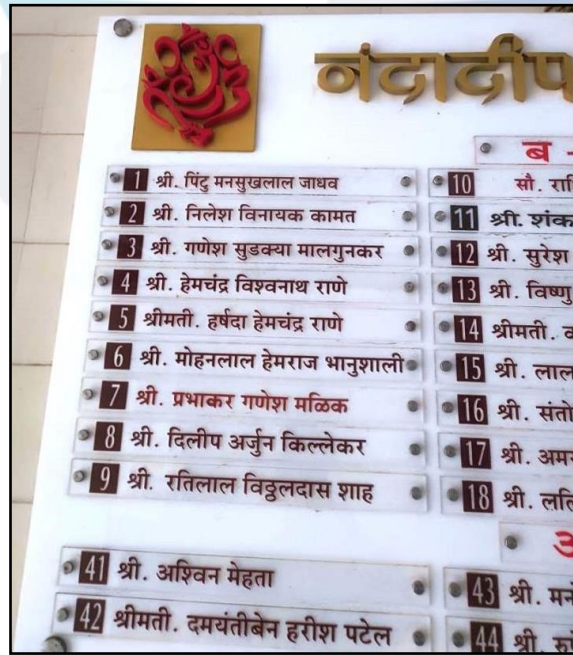 नंदादीप
ब -
1 श्री. पिंटु मनसुखलाल जाधव
2 श्री. निलेश विनायक कामत
3 श्री. गणेश सुडक्या मालगुनकर
4 श्री. हेमचंद्र विश्वनाथ राणे
5 श्रीमती. हर्षदा हेमचंद्र राणे
6 श्री. मोहनलाल हेमराज भानुशाली
7 श्री. प्रभाकर गणेश मळिक
8 श्री. दिलीप अर्जुन किल्लेकर
9 श्री. रतिलाल विठ्ठलदास शाह
10 सौ.
11 श्री. शंक
12 श्री. सुरेश
13 श्री. विष्णु
14 श्रीमती.
15 श्री. लाल
16 श्री. संतो
17 श्री. अम
18 श्री.
41 श्री. अश्विन मेहता
42 श्रीमती. दमयंतीबेन हरीश पटेल
43 श्री.
44 श्री.